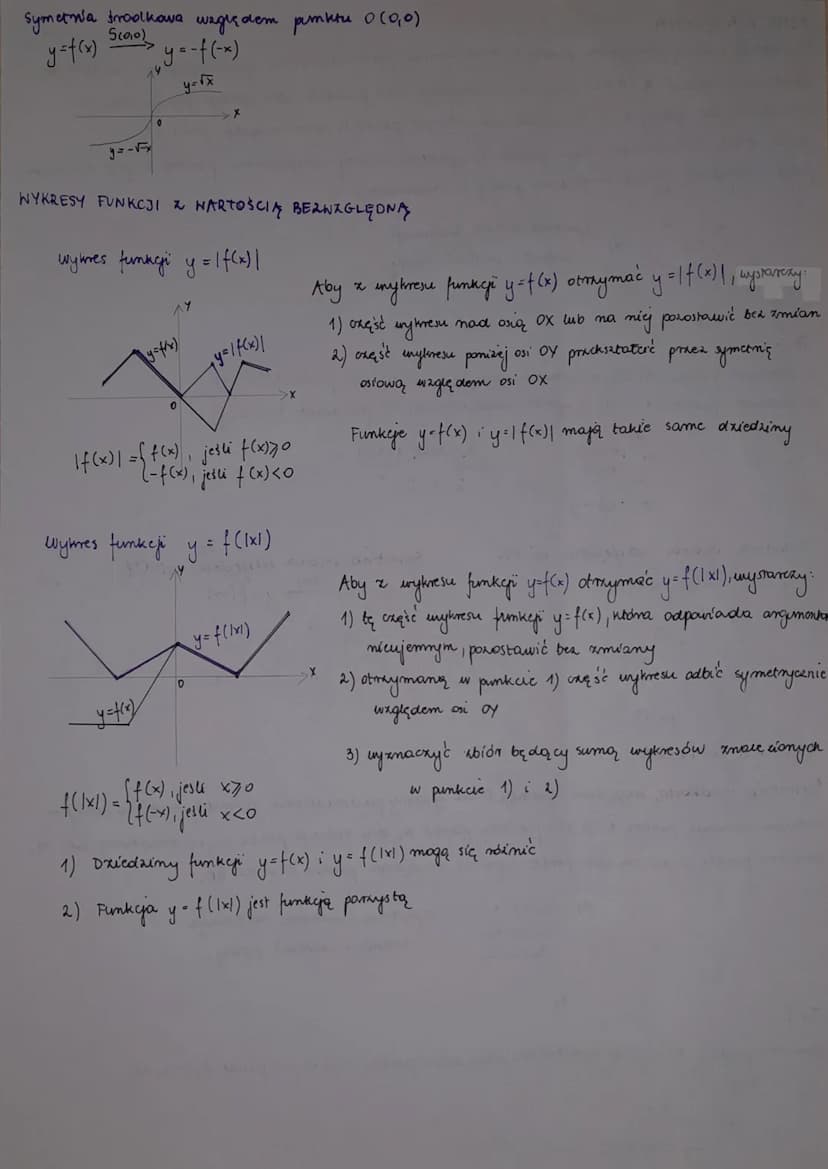 Symetria środkowa względem punktu O(0,0)
y=f(x) S(0,0)→ y=-f(-x)
y
y=√x
x
0
y=-√-x
WYKRESY FUNKCJI Z WARTOŚCIĄ BEZWZGLĘDNĄ
Wykres funkcji y=|f(x)|
Aby z wykresu funkcji y=f(x) otrzymać y=|f(x)|, wystarczy:
1) część wykresu nad osią OX lub na niej pozostawić bez zmian
2) część wykresu poniżej osi OY przekształcić przez symetrię
osiową względem osi OX
Y
y=f(x)
y=|f(x)|
X
0
Funkcje y=f(x) i y=|f(x)| mają takie same dziedziny
|f(x)| = { f(x), jeśli f(x)⩾0
-f(x), jeśli f(x)<0
Wykres funkcji y = f(|x|)
Aby z wykresu funkcji y=f(x) otrzymać y=f(|x|), wystarczy:
1) tę część wykresu funkcji y=f(x), która odpowiada argumentom
nieujemnym, pozostawić bez zmiany
2) otrzymaną w punkcie 1) część wykresu odbić symetrycznie
względem osi OY
3) wyznaczyć zbiór będący sumą wykresów znalezionych
w punkcie 1) i 2)
Y
y=f(|x|)
X
0
y=f(x)
f(|x|) = { f(x), jeśli x⩾0
f(-x), jeśli x<0
1) Dziedziny funkcji y=f(x) i y=f(|x|) mogą się różnić
2) Funkcja y=f(|x|) jest funkcją parzystą